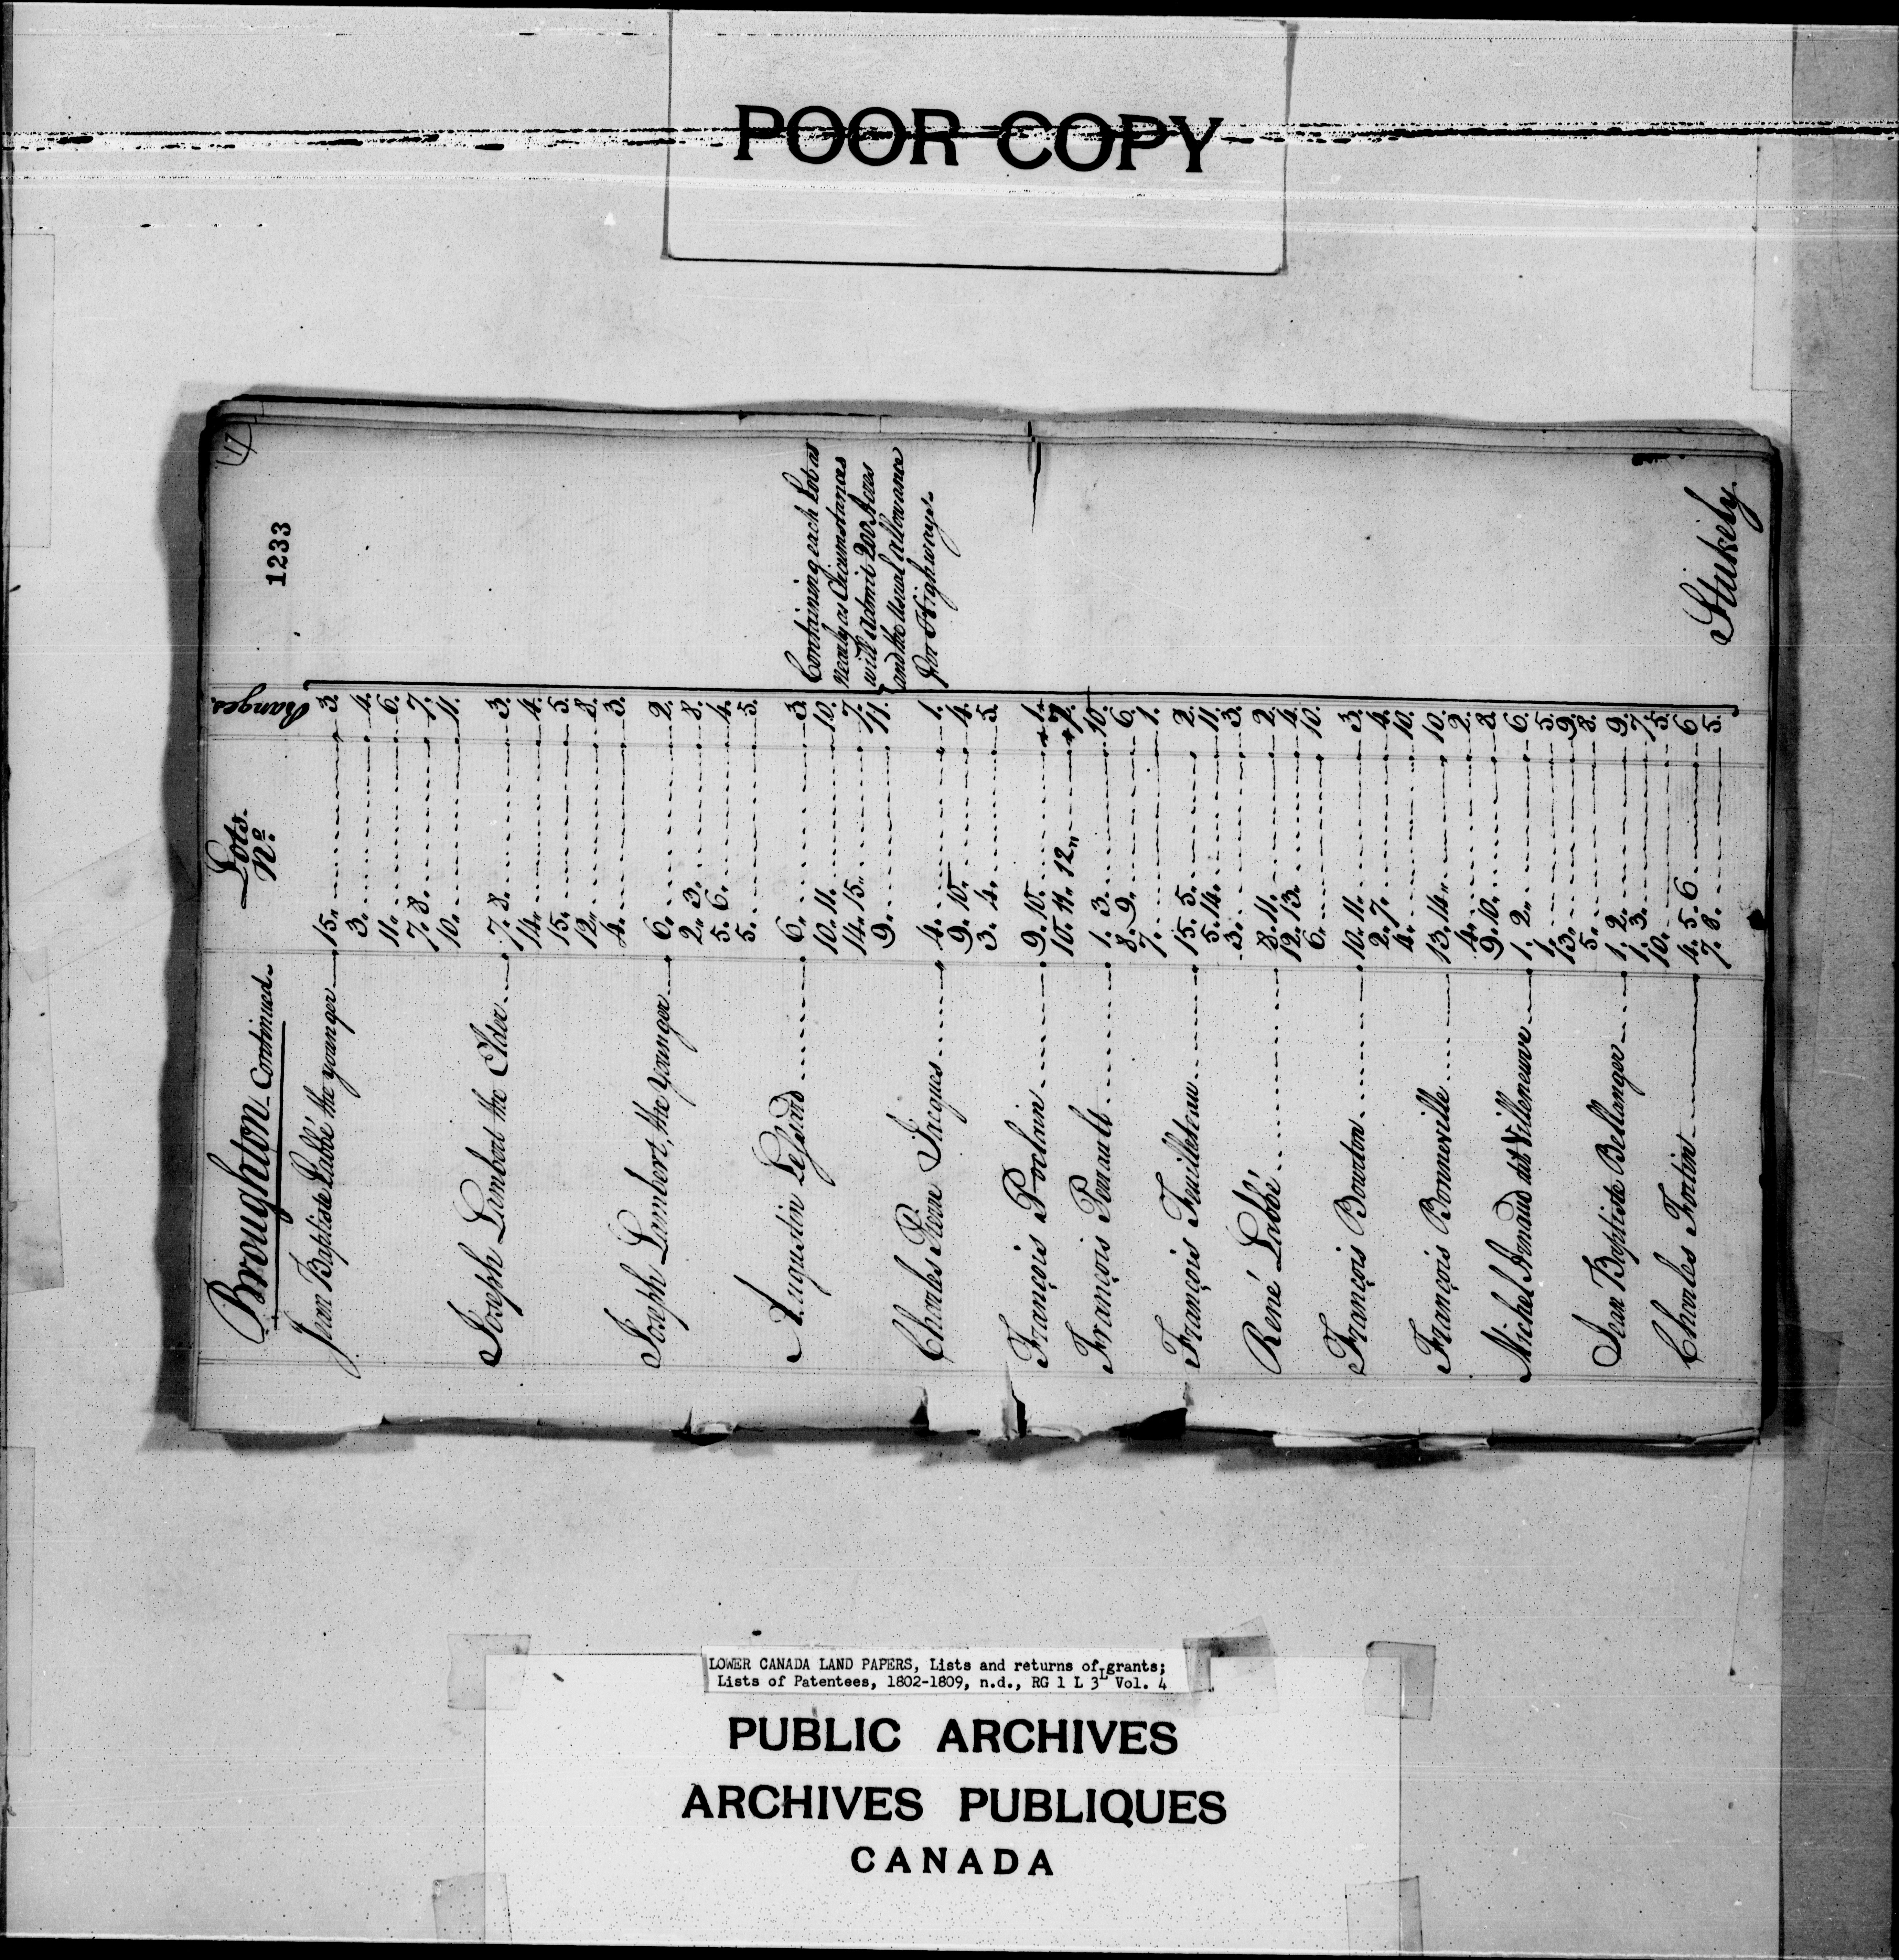 POOR COPY
17
1233
Broughton Continued.
Lots. Nº
Ranges.
Jean Baptiste Labbé the younger 15. 3.
3. 4.
11. 6.
7. 8. 7.
10. 11.
Joseph Lambert the Elder 7. 8. 3.
14. 4.
15. 5.
12. 8.
4. 3.
Joseph Lambert, the Younger 6. 2.
2. 3. 8.
5. 6. 4.
5. 5.
Augustin Lessard 6. 3.
10. 11. 10.
14. 15. 7.
9. 11.
Charles Pierre Jacques 4. 1.
9. 10. 4.
3. 4. 5.
François Poclain 9. 10. 1.
10. 11. 12. 7.
François Penault 1. 3. 10.
8. 9. 6.
7. 1.
François Feuilleteau 15. 5. 2.
5. 14. 11.
3. 3.
René Labbé 8. 11. 2.
12. 13. 4.
6. 10.
François Bourdon 10. 11. 3.
2. 7. 4.
4. 10.
François Bonneville 13. 14. 10.
4. 2.
9. 10. 8.
Michel Arnaud dit Villeneuve 1. 2. 6.
1. 5.
13. 9.
5. 8.
Jean Baptiste Bellanger 1. 2. 9.
1. 3. 7.
10. 5.
Charles Fortin 4. 5. 6 6
7. 8. 5.
Containing each Lot as
nearly as Circumstances
will admit 200 Acres
and the Usual allowance
for Highways.
Stukely.
LOWER CANADA LAND PAPERS, Lists and returns of grants;
Lists of Patentees, 1802-1809, n.d., RG 1 L 3L Vol. 4
PUBLIC ARCHIVES
ARCHIVES PUBLIQUES
CANADA